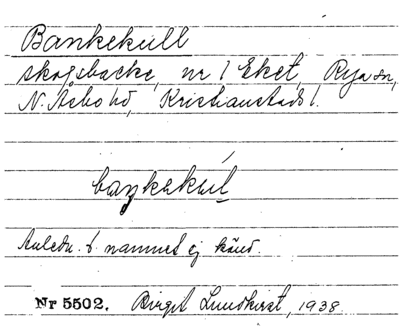 Bankekull
skogsbacke, nr 1 Eket, Rya sn,
N. Åsbo hd, Kristianstads l.
baŋkekul
Anledn. t. namnet ej känd.
Nr 5502. Birgit Lundkvist, 1938.